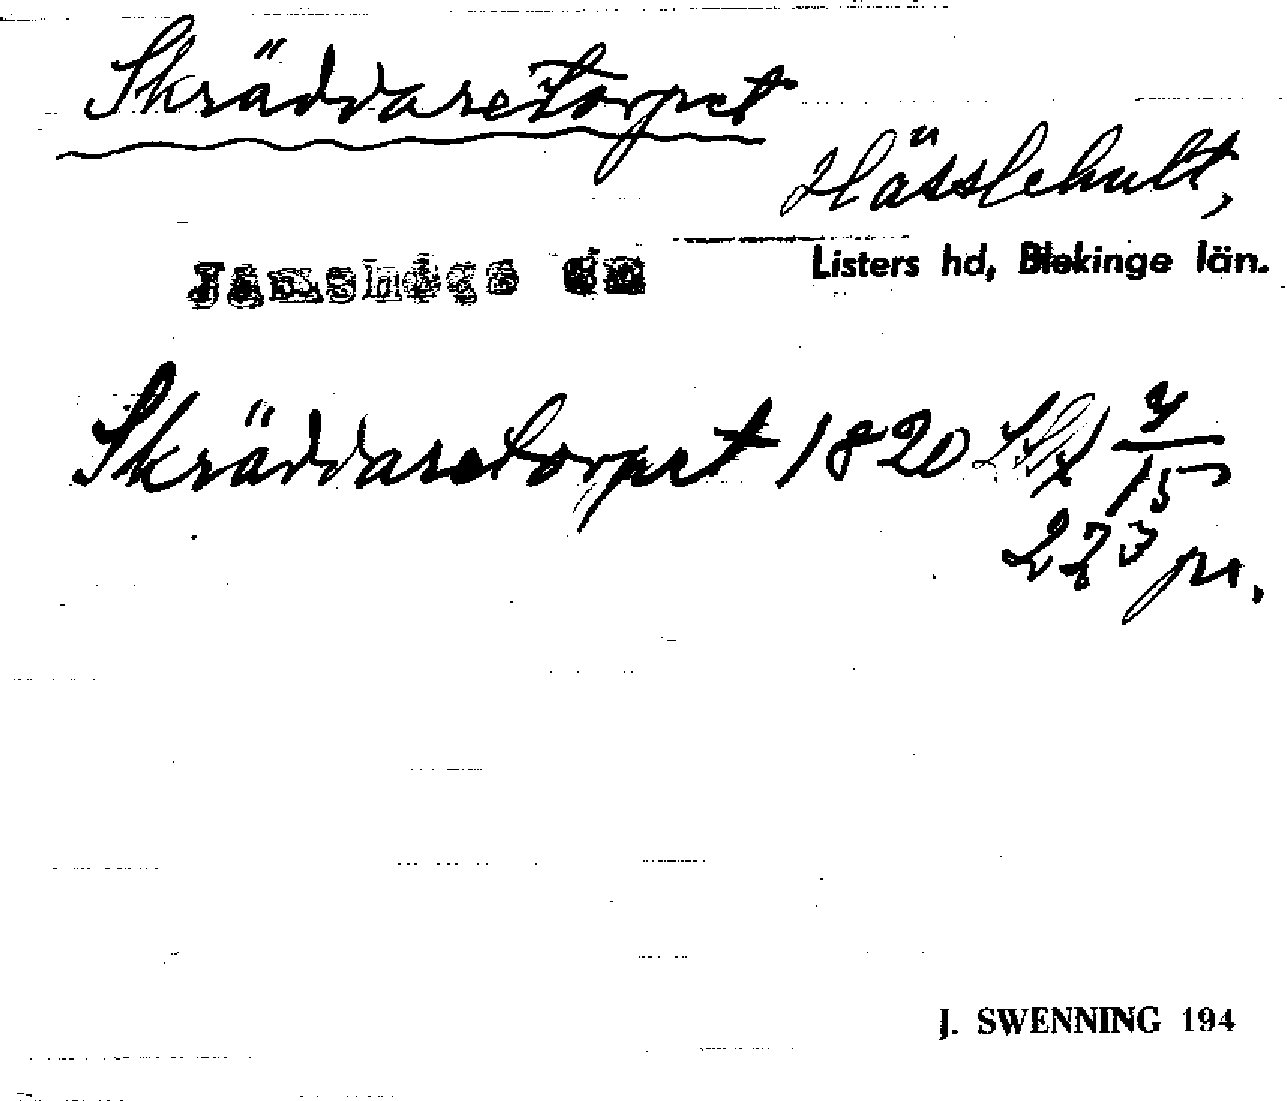 Skräddaretorpet
Hässlehult,
Jämshögs sn
Listers hd, Blekinge län.
Skräddaretorpet 1820
223 pr.
J. SWENNING 194